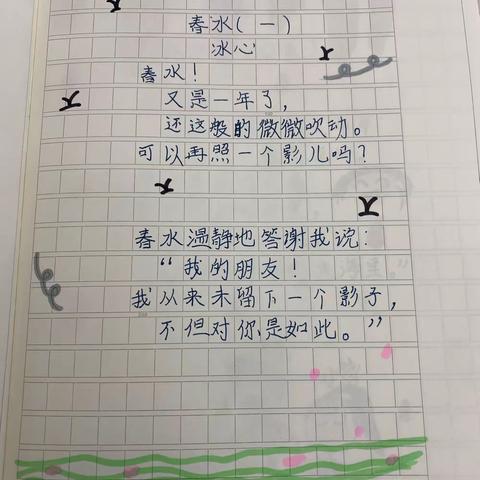 春水(一)
冰心
春水！
又是一年了，
还这般的微微吹动。
可以再照一个影儿吗？
春水温静地答谢我说：
“我的朋友！
我从来未留下一个影子，
不但对你是如此。”